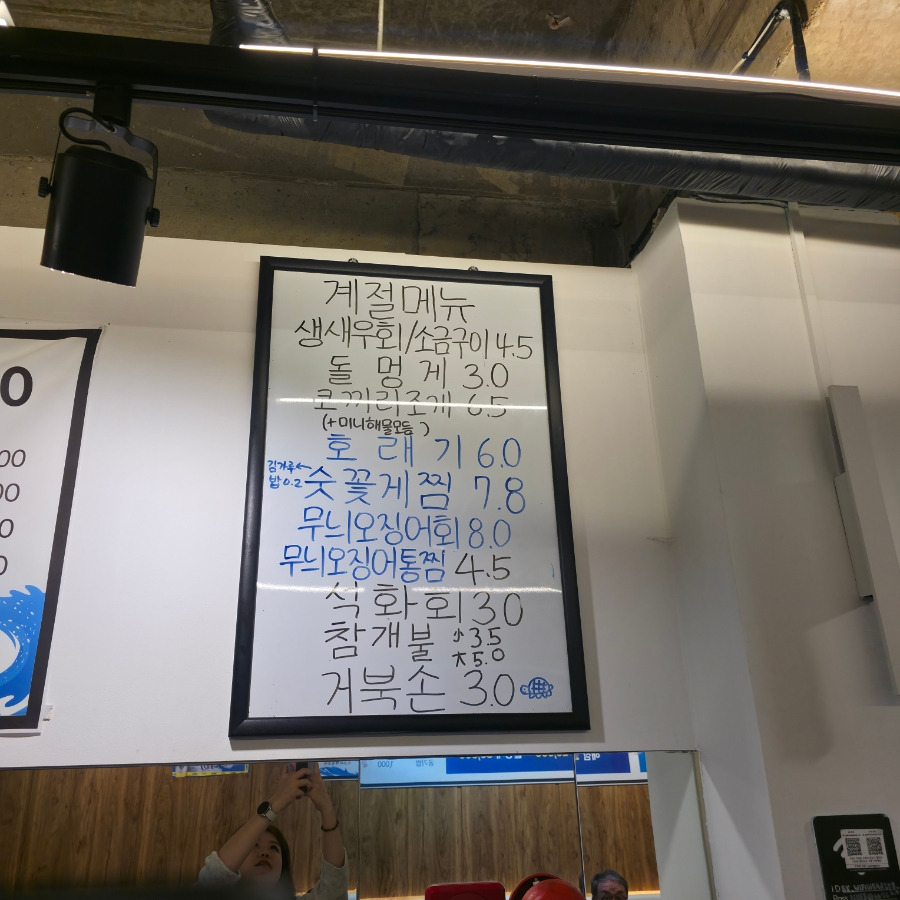 계절메뉴
생새우회/소금구이 4.5
돌 멍 게 3.0
코끼리조개 6.5
(+미니해물모듬 )
호 래 기 6.0
김가루←
밥 0.2
숏꽃게찜 7.8
무늬오징어회 8.0
무늬오징어통찜 4.5
석화회 3.0
참개불 小 3.5
大 5.0
거북손 3.0
0
00
00
0
0
1,000